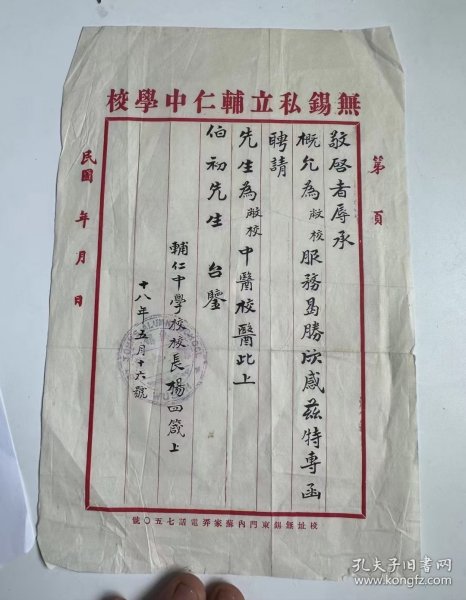 無錫私立輔仁中學校
第 頁
敬啓者辱承
概允為敝校服務曷勝欣感茲特專函
聘請
先生為敝校中醫校醫此上
伯初先生 台鑒
輔仁中學校校長楊四箴上
十八年五月十六號
民國 年 月 日
校址無錫東門內蘇家弄電話七五〇號
孔夫子旧书网
www.kongfz.com